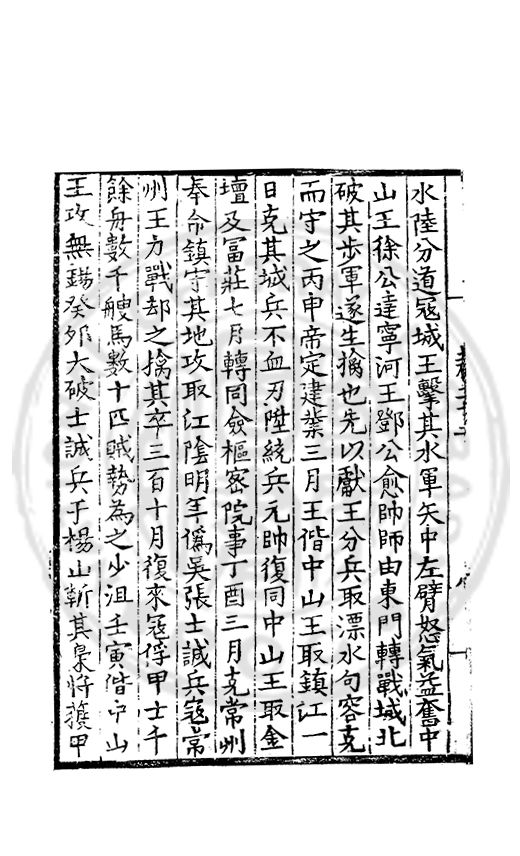 水陸分道寇城王擊其水軍矢中左臂怒氣益奮中
山王徐公達寧河王鄧公愈帥師由東門轉戰城北
破其步軍遂生擒也先以獻王分兵取漂水句容克
而守之丙申帝定建業三月王偕中山王取鎮江一
日克其城兵不血刃陞統兵元帥復同中山王取金
壇及冨莊七月轉同僉樞密院事丁酉三月克常州
奉命鎮守其地攻取江陰明年僞吳張士誠兵寇常
州王力戰却之擒其卒三百十月復來寇俘甲士千
餘舟數千艘馬數十匹賊勢為之少沮壬寅偕中山
王攻無錫癸夘大破士誠兵于楊山斬其梟將獲甲